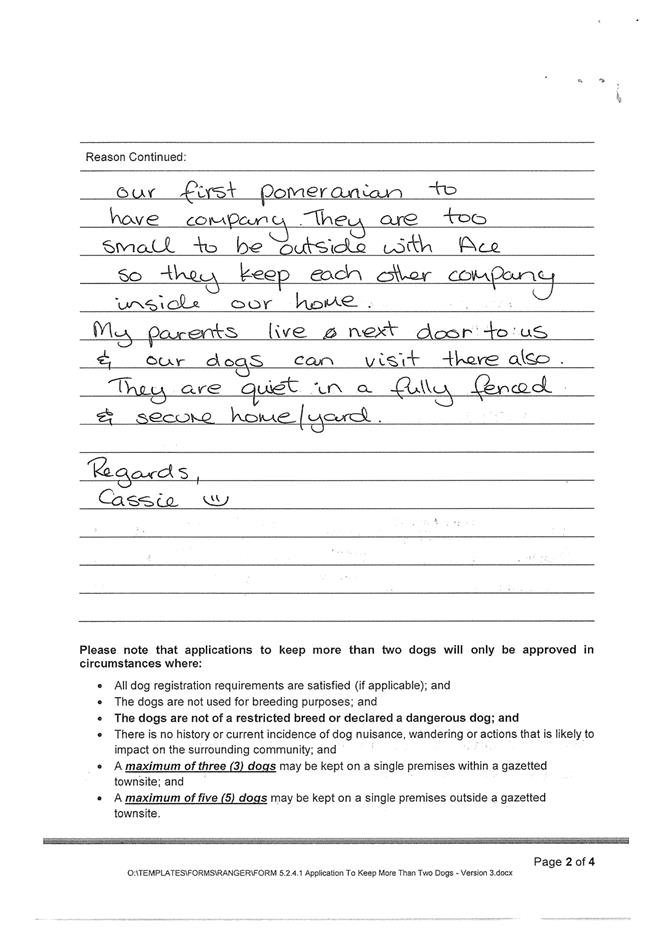 Reason Continued:
our first pomeranian to
have company. They are too
small to be outside with Ace
so they keep each other company
inside our home.
My parents live next door to us
& our dogs can visit there also.
They are quiet in a fully fenced
& secure home/yard.
Regards,
Cassie
Please note that applications to keep more than two dogs will only be approved in
circumstances where:
• All dog registration requirements are satisfied (if applicable); and
• The dogs are not used for breeding purposes; and
• The dogs are not of a restricted breed or declared a dangerous dog; and
• There is no history or current incidence of dog nuisance, wandering or actions that is likely to
impact on the surrounding community; and
• A maximum of three (3) dogs may be kept on a single premises within a gazetted
townsite; and
• A maximum of five (5) dogs may be kept on a single premises outside a gazetted
townsite.
Page 2 of 4
O:\TEMPLATES\FORMS\RANGER\FORM 5.2.4.1 Application To Keep More Than Two Dogs - Version 3.docx